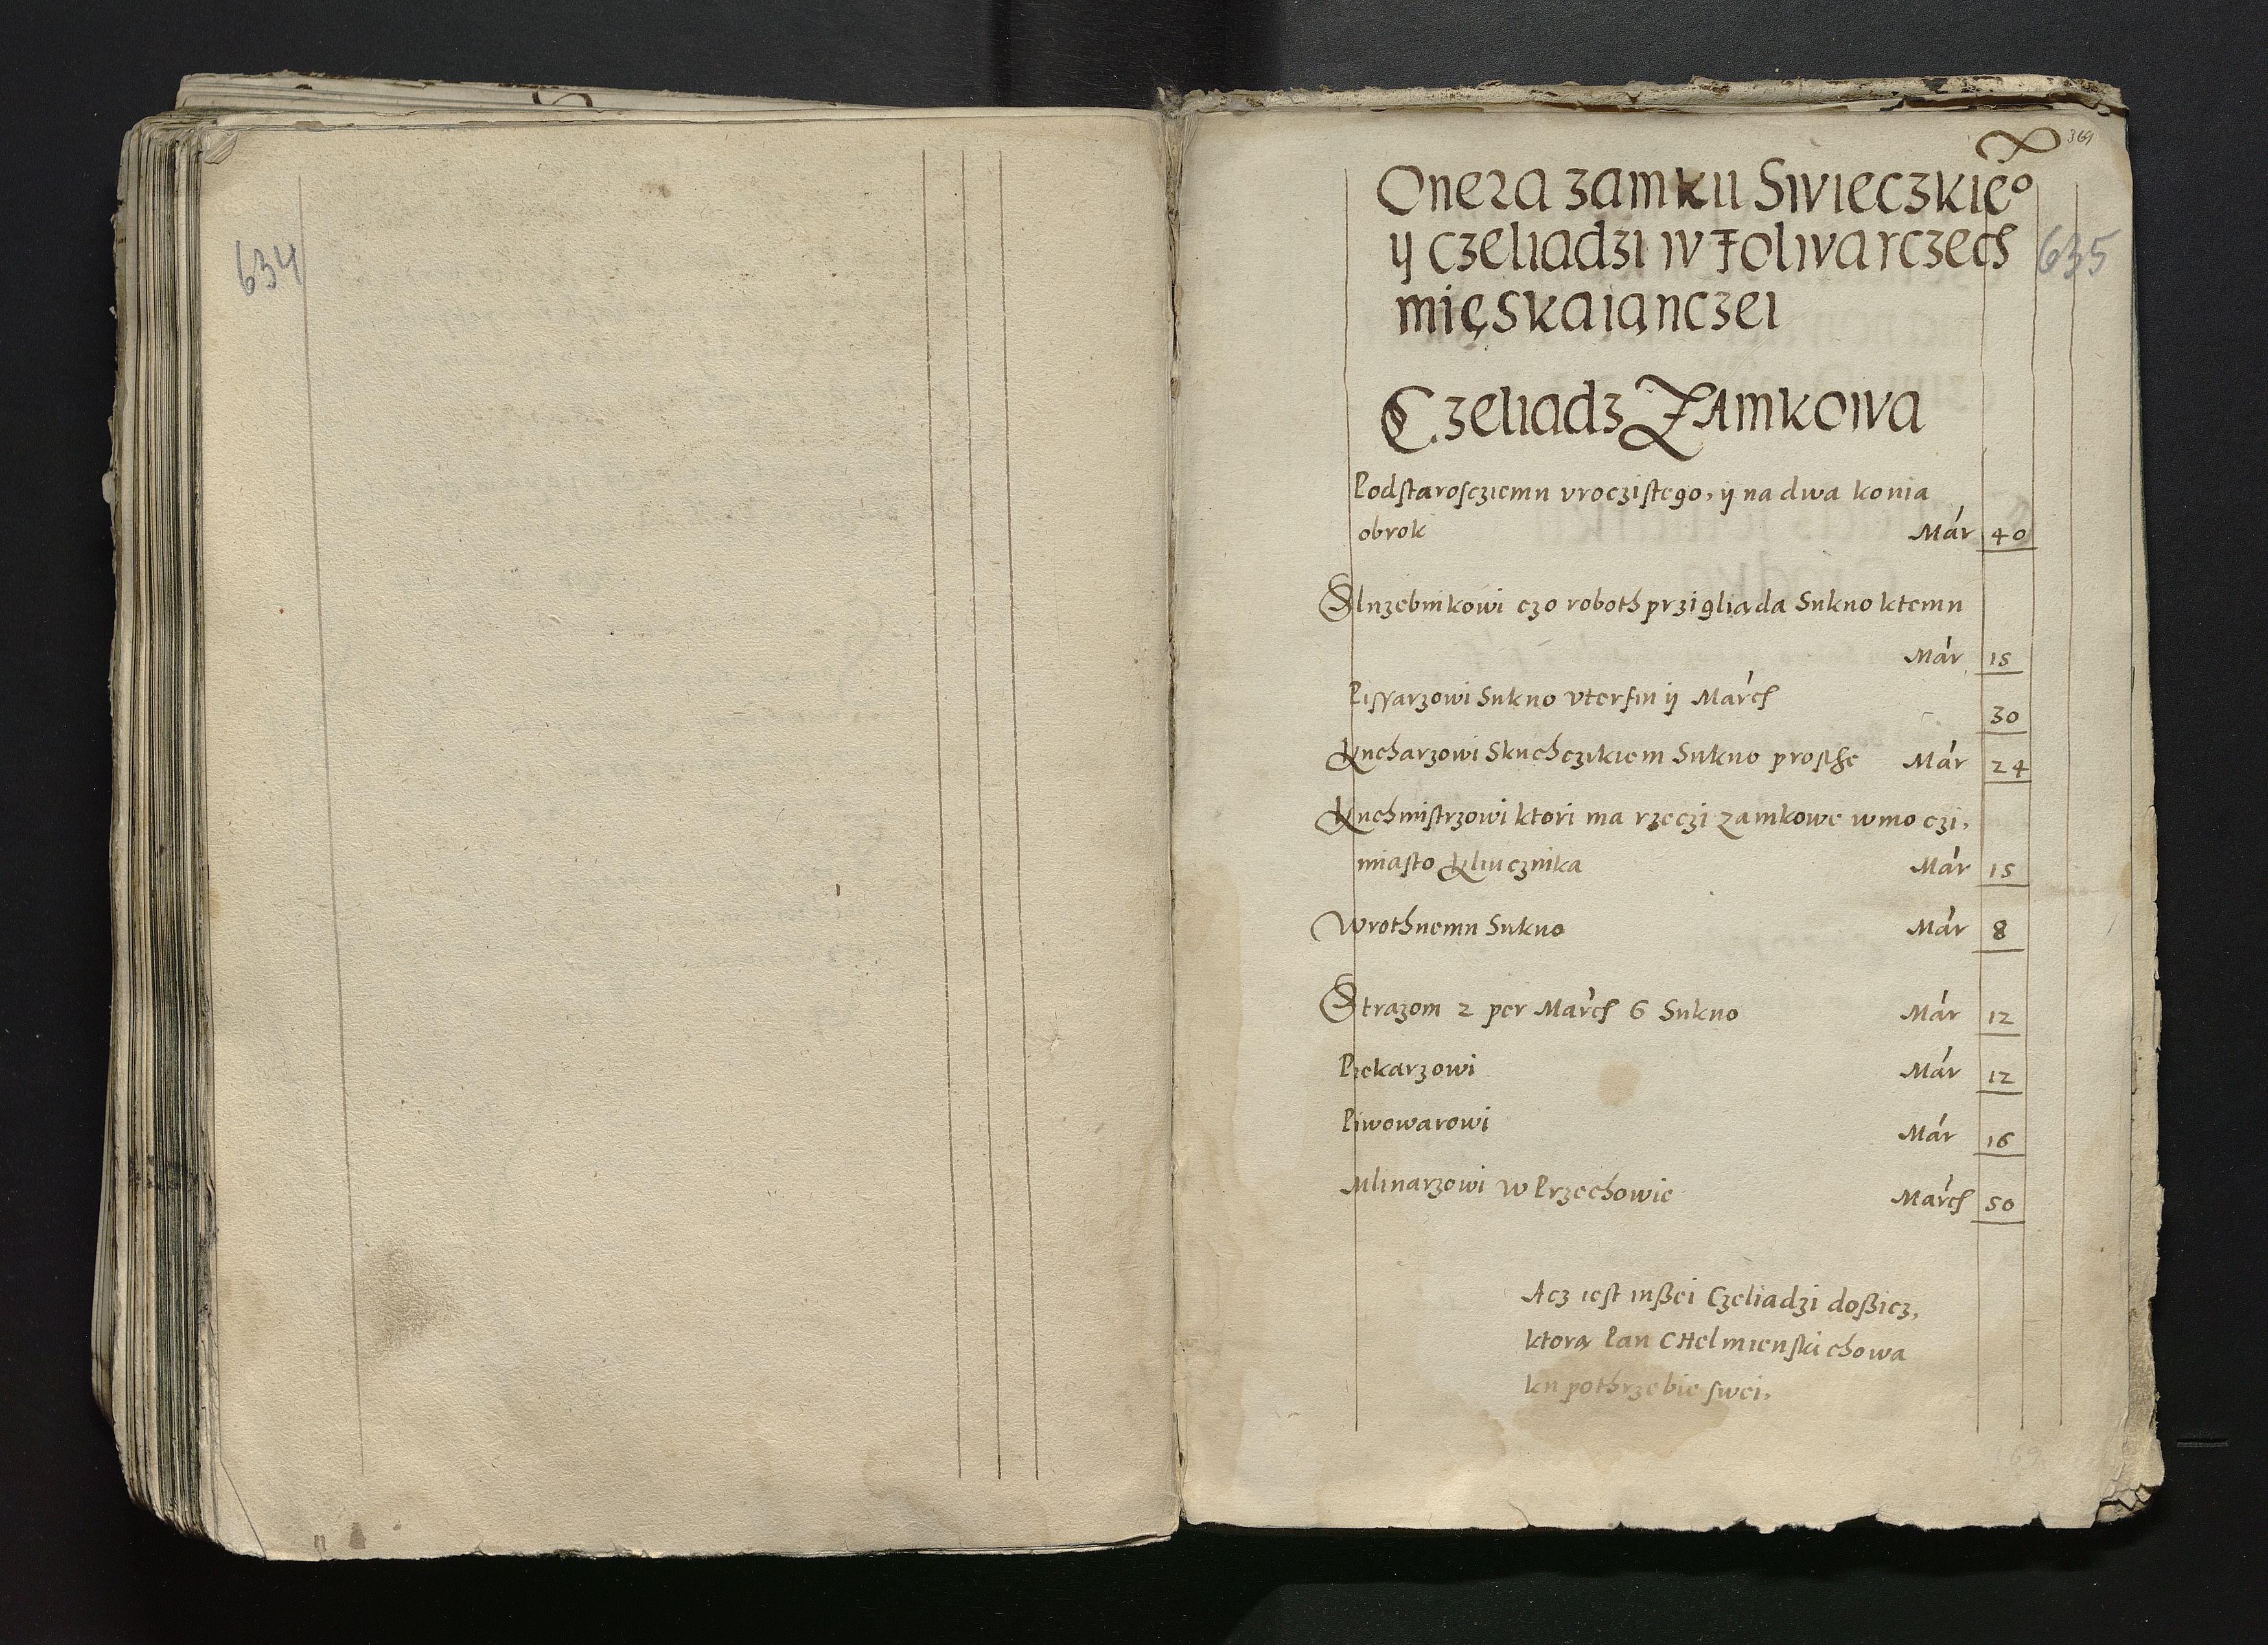 634
369
Onera zamku Swieczkie°
ij czeliadzi w Folwarczech
635
mięskaiąnczei
Czeliadz Zamkowa
Podstaroscziemu vroczistego, ij na dwa konia
obrok Mar 40
Sluzebnikowi czo roboth przigliąda Sukno ktemu
Mar 15
Pissarzowi Sukno vterfin ij March
30
Kucharzowi Skuchczikiem Sukno prosthe Mar 24
Kuchmistrzowi ktori ma rzeczi zamkowe wmo czi,
miasto Kliucznika Mar 15
Wrothnemu Sukno Mar 8
Strazom 2 per March 6 Sukno Mar 12
Piekarzowi Mar 12
Piwowarowi Mar 16
Mlinarzowi w Przechowie March 50
Acz iest inßei Czeliadzi doßicz,
ktorą Pan CHelmienski chowa
ku pothrzebie swei,